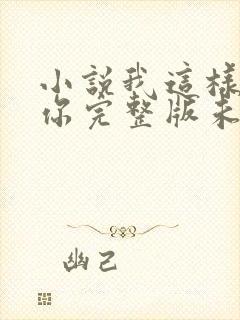 小說我這樣
你完整版未
幽己